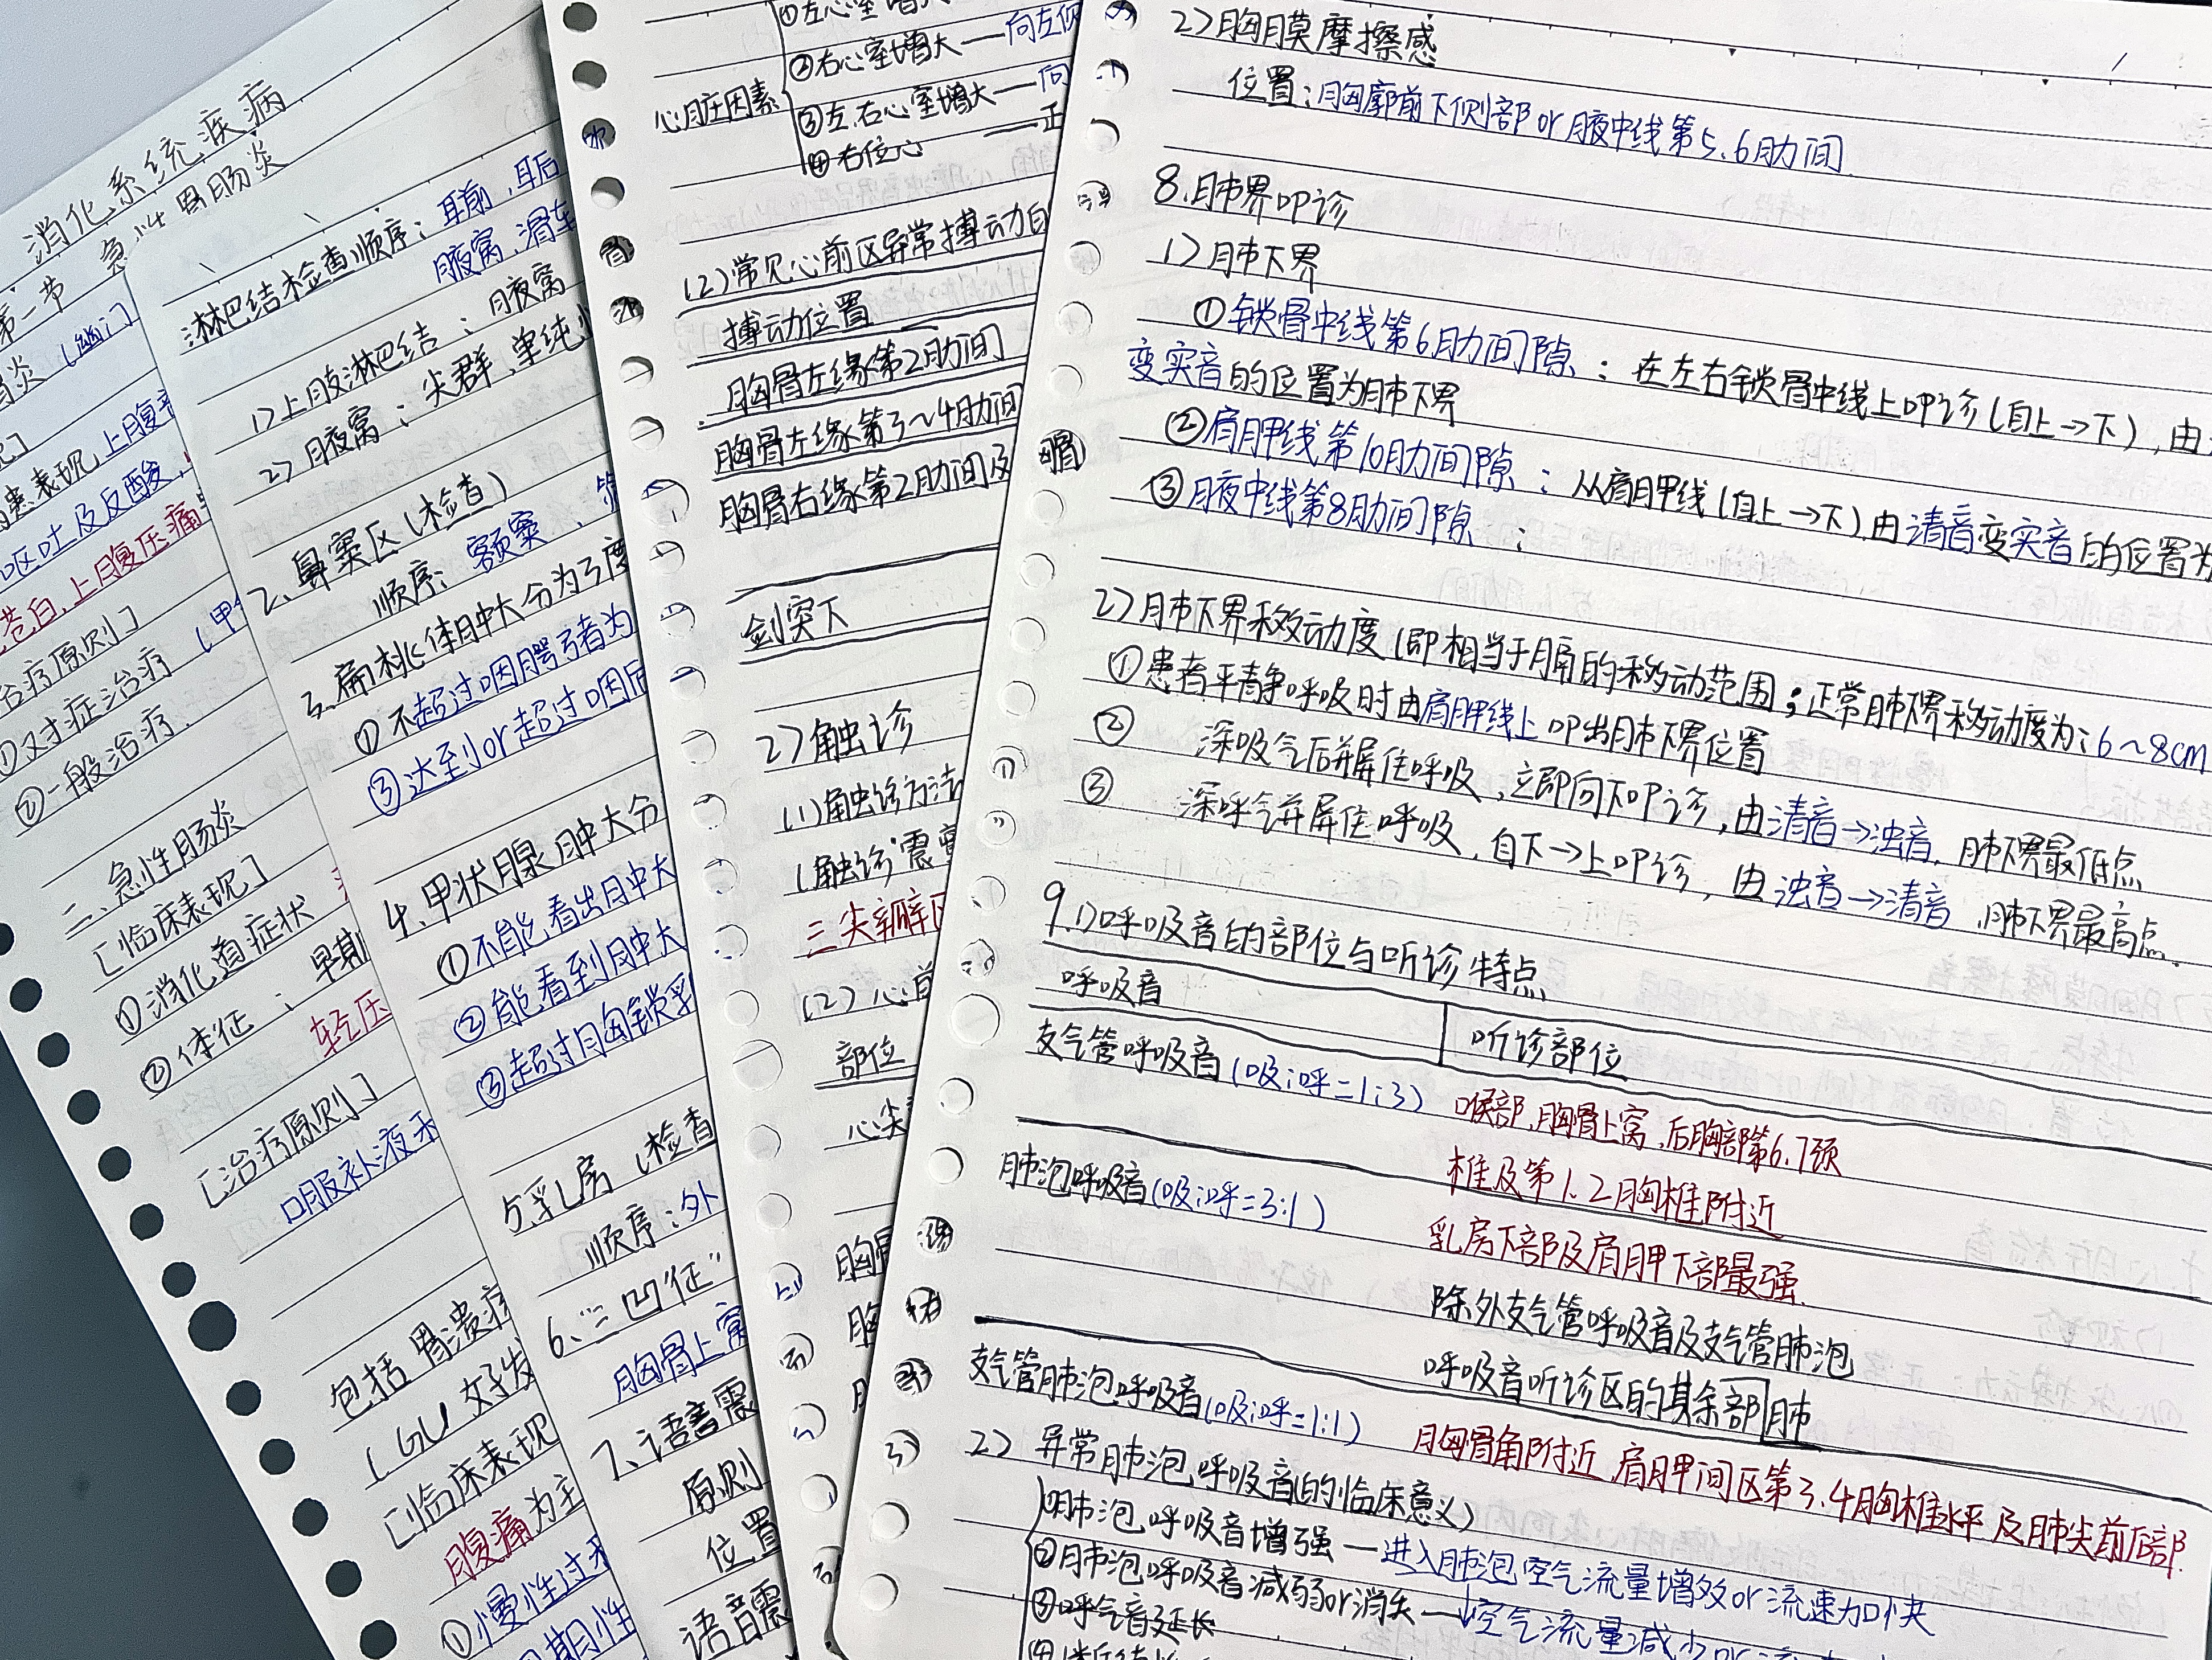 消化系统疾病
第一节 急性胃肠炎
胃炎 (幽门
现]
患表现,上腹
呕吐及反酸,
苍白,上腹压痛
治疗原则]
①对症治疗
②一般治疗.
二、急性肠炎
[临床表现]
①消化道症状
②体征: 早期
轻压
[治疗原则]
口服补液
包括 胃溃疡
1. GU 好发
[临床表现
腹痛为主
①慢性过
期性
淋巴结检查顺序: 耳前、耳后
腋窝、滑车
1)上肢淋巴结: 腋窝
2)腋窝: 尖群、
2、鼻窦区(检查)
顺序: 额窦、
3、扁桃体肿大分为3度
①不超过咽腭弓者为
③达到or超过咽后
4、甲状腺肿大分
①不能看出肿大
②能看到肿大
③超过胸锁乳
5、乳房(检查
顺序:外
6、"三凹征"
胸骨上窝
7、语音震
原则
位置
语音震
心脏因素
①左心室增大
②右心室增大——向左
③左、右心室增大——向
④右位心 ——正
(2)常见心前区异常搏动
搏动位置
胸骨左缘第2肋间
胸骨左缘第3~4肋间
胸骨右缘第2肋间及
剑突下
2)触诊
(1)触诊方法
(触诊"震
三尖瓣区
(2)心前
部位
心尖
胸骨
2)胸膜摩擦感
位置:胸廓前下侧部or腋中线第5、6肋间
8、肺界叩诊
1)肺下界
①锁骨中线第6肋间隙:在左右锁骨中线上叩诊(自上→下),由
变实音的位置为肺下界
②肩胛线第10肋间隙:从肩胛线(自上→下).由清音变实音的位置为
③腋中线第8肋间隙:
2)肺下界移动度(即相当于膈的移动范围;正常肺下界移动度为:6~8cm
①患者平静呼吸时由肩胛线上叩出肺下界位置
② 深吸气后并屏住呼吸,立即向下叩诊,由清音→浊音,肺下界最低点
③ 深呼气并屏住呼吸,自下→上叩诊,由浊音→清音,肺下界最高点.
9、1)呼吸音的部位与听诊特点
呼吸音 听诊部位
支气管呼吸音(吸:呼=1:3) 喉部,胸骨上窝,后胸部第6.7颈
椎及第1、2胸椎附近
肺泡呼吸音(吸:呼=3:1) 乳房下部及肩胛下部最强.
除外支气管呼吸音及支气管肺泡
呼吸音听诊区的其余部肺
支气管肺泡呼吸音(吸:呼=1:1) 胸骨角附近,肩胛间区第3.4胸椎水平及肺尖前后部
2) 异常肺泡呼吸音(的临床意义)
①肺泡呼吸音增强—进入肺泡空气流量增多or流速加快
②肺泡呼吸音减弱or消失—↓空气流量减少or
③呼气音延长